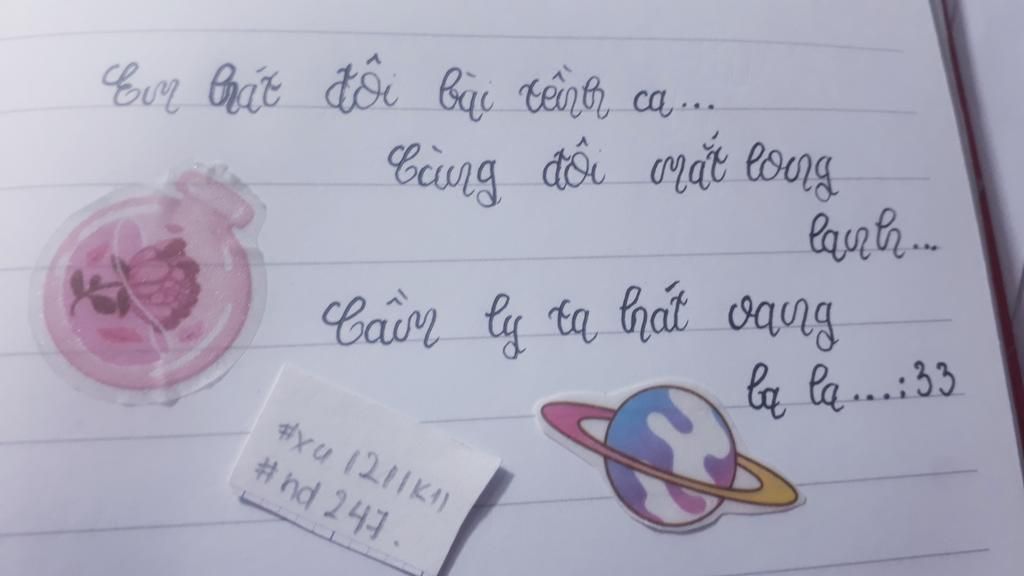 Em hát đôi bài tềinh ca...
Cùng đôi mắt long
lanh...
Cầm ly ta hát vang
la la....:33
#xu 1211k11
#nd 247.